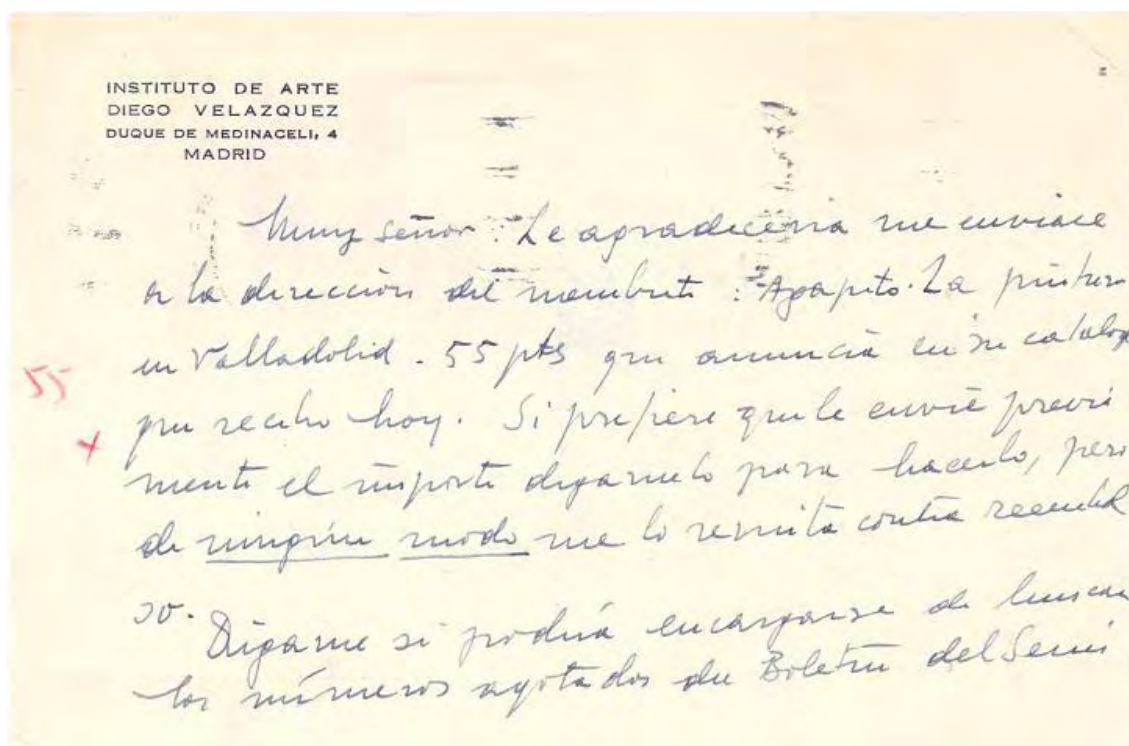 INSTITUTO DE ARTE
DIEGO VELAZQUEZ
DUQUE DE MEDINACELI, 4
MADRID
Muy señor: Le agradeceria me enviace
a la dirección del membrete: Agapito. La pintura
en Valladolid. 55 pts que anuncia en su catalogo
55
que recibo hoy. Si prefiere que le envie previa
+
mente el importe digamelo para hacerlo, pero
de ningún modo me lo remita contra reembol
so.
Digame si podría encargarse de buscar
los números agotados del Boletín del Semi